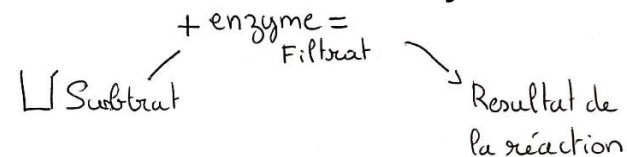 + enzyme =
Filtrat
Subtrat
Resultat de
la réaction